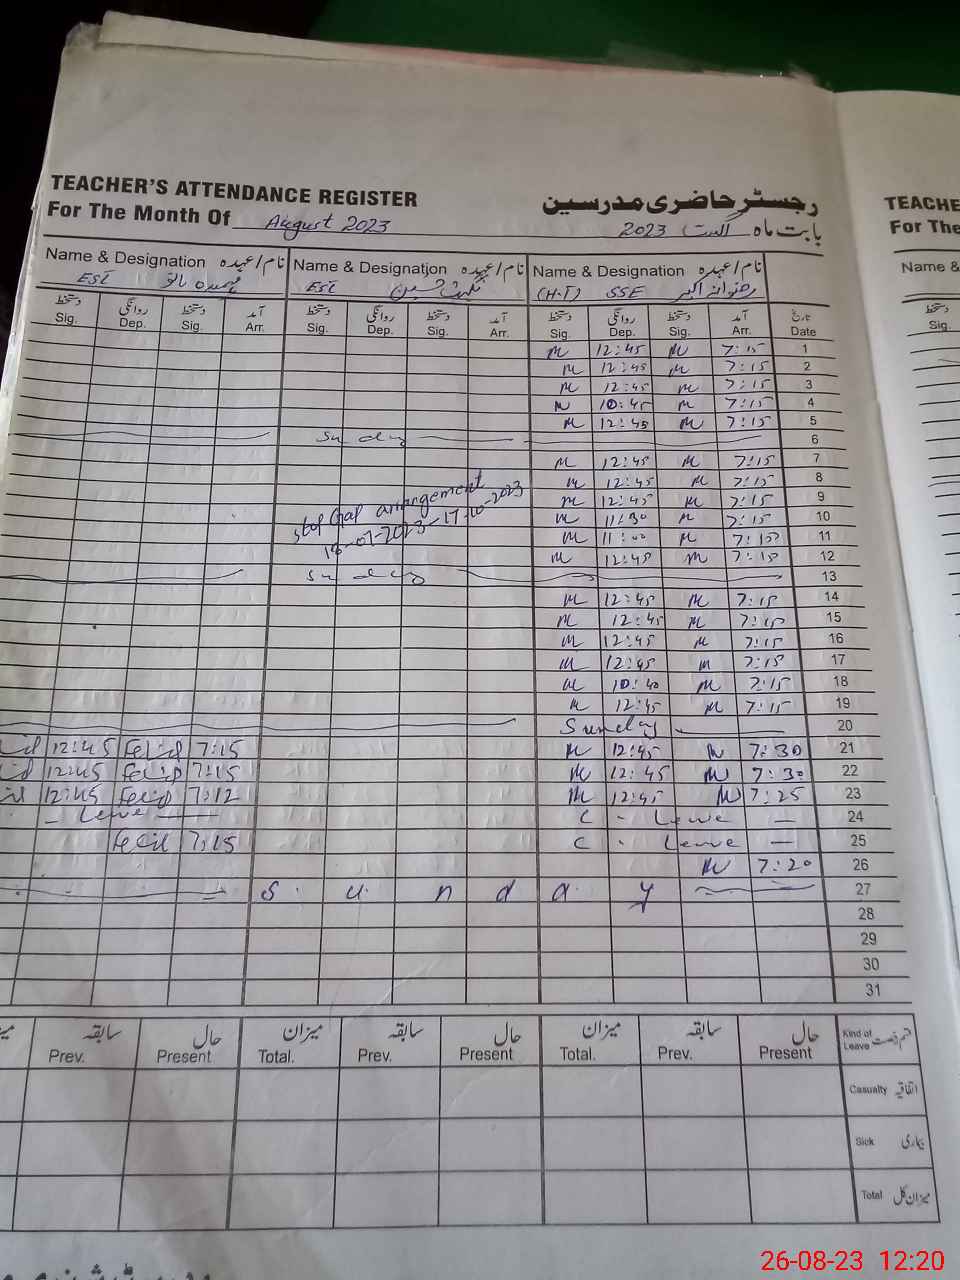 TEACHER'S ATTENDANCE REGISTER رجسٹر حاضری مدرسین
For The Month Of August 2023 بابت ماہ اگست 2023
Name & Designation نام/عہدہ Name & Designation نام/عہدہ Name & Designation نام/عہدہ
EST EST (H.T) SSE رضوانہ اکبر
دستخط روانگی دستخط آمد دستخط روانگی دستخط آمد دستخط روانگی دستخط آمد تاریخ
Sig. Dep. Sig. Arr. Sig. Dep. Sig. Arr. Sig. Dep. Sig. Arr. Date
12:45 7:15 1
12:45 7:15 2
12:45 7:15 3
10:45 7:15 4
12:45 7:15 5
Sunday 6
12:45 7:15 7
12:45 7:15 8
12:45 7:15 9
stop Gap arrangement
18-07-2023-17-10-2023
11:30 7:15 10
11:00 7:15 11
12:45 7:15 12
Sunday 13
12:45 7:15 14
12:45 7:15 15
12:45 7:15 16
12:45 7:15 17
10:40 7:15 18
12:45 7:15 19
Sunday 20
12:45 7:15 12:45 7:30 21
12:45 7:15 12:45 7:30 22
12:45 7:12 12:45 7:25 23
- Leave - C - Leave - 24
7:15 C - Leave - 25
7:20 26
S u n d a y 27
28
29
30
31
سابقہ حال میزان سابقہ حال میزان سابقہ حال قسم رخصت
Prev. Present Total. Prev. Present Total. Prev. Present Kind of Leave
Casualty اتفاقیہ
Sick بیماری
Total میزان کل
TEACHE
For The
Name &
Sig.
26-08-23 12:20